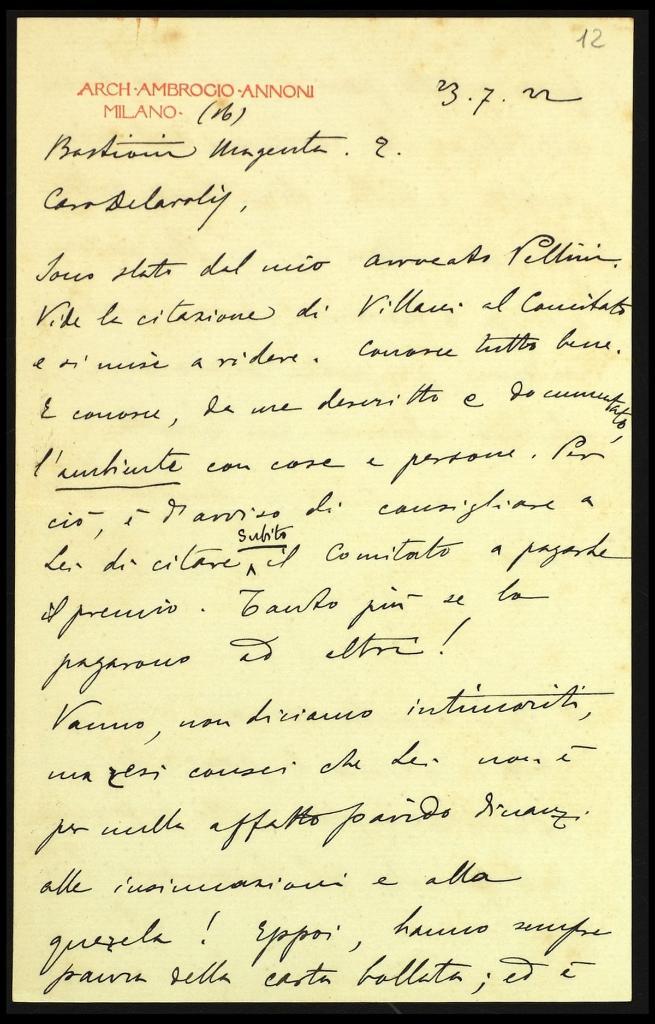 12
ARCH·AMBROGIO·ANNONI
MILANO· (16)
23.7.22
Bastioni Magenta. 2.
Caro
Sono stato dal mio avvocato Pellini.
Vide la citazione di Villani al Comitato
e si mise a ridere. Conosce tutto bene.
E conosce, da me descritto e documentato,
l'ambiente con cose e persone. Per
ciò, è d'avviso di consigliare a
Lei di citare subito il Comitato a pagarle
il premio. Tanto più se lo
pagarono ad altri!
Vanno, non diciamo intimoriti,
ma resi consci che Lei non è
per nulla affatto pavido dinanzi
alle insinuazioni e alla
querela! Eppoi, hanno sempre
paura della carta bollata; ed è